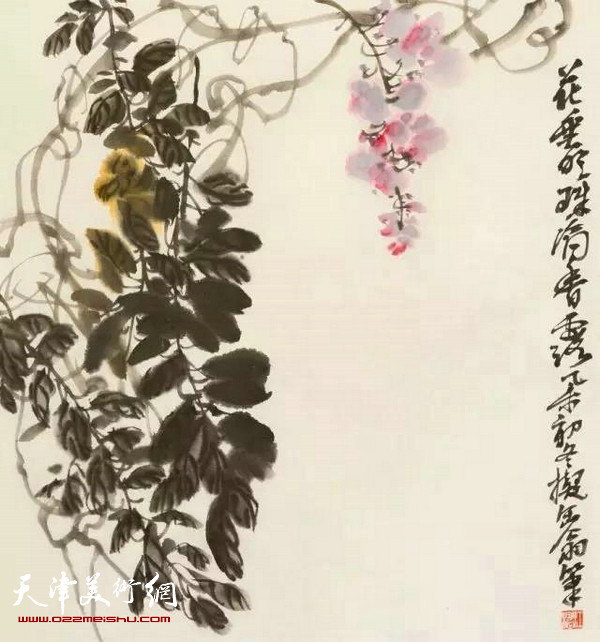 花垂明珠滴香露乙未初冬拟缶翁笔
天津美術網
www.022meishu.com